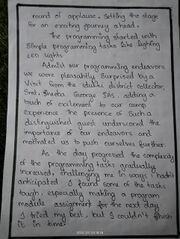 round of applause, setting the stage
for an exciting journey ahead.
The programming started with
simple programming tasks like lighting
LED lights
Amidst our programming endeavors
we were pleasantly surprised by a
visit from the stalks district collector,
Smt. Sneha George IAS, adding a
touch of excitement to our camp
experience the presence of such a
distinguished guest underscored the
importance of our endeavors and
motivated us to push ourselves further.
As the day progressed the complexity
of the programming tasks gradually
increased, challenging me in ways I hadn't
anticipated I found some of the tasks
tough, especially making a program
module assignment for the next day
I tried my best, but I couldn't finish
it in time.